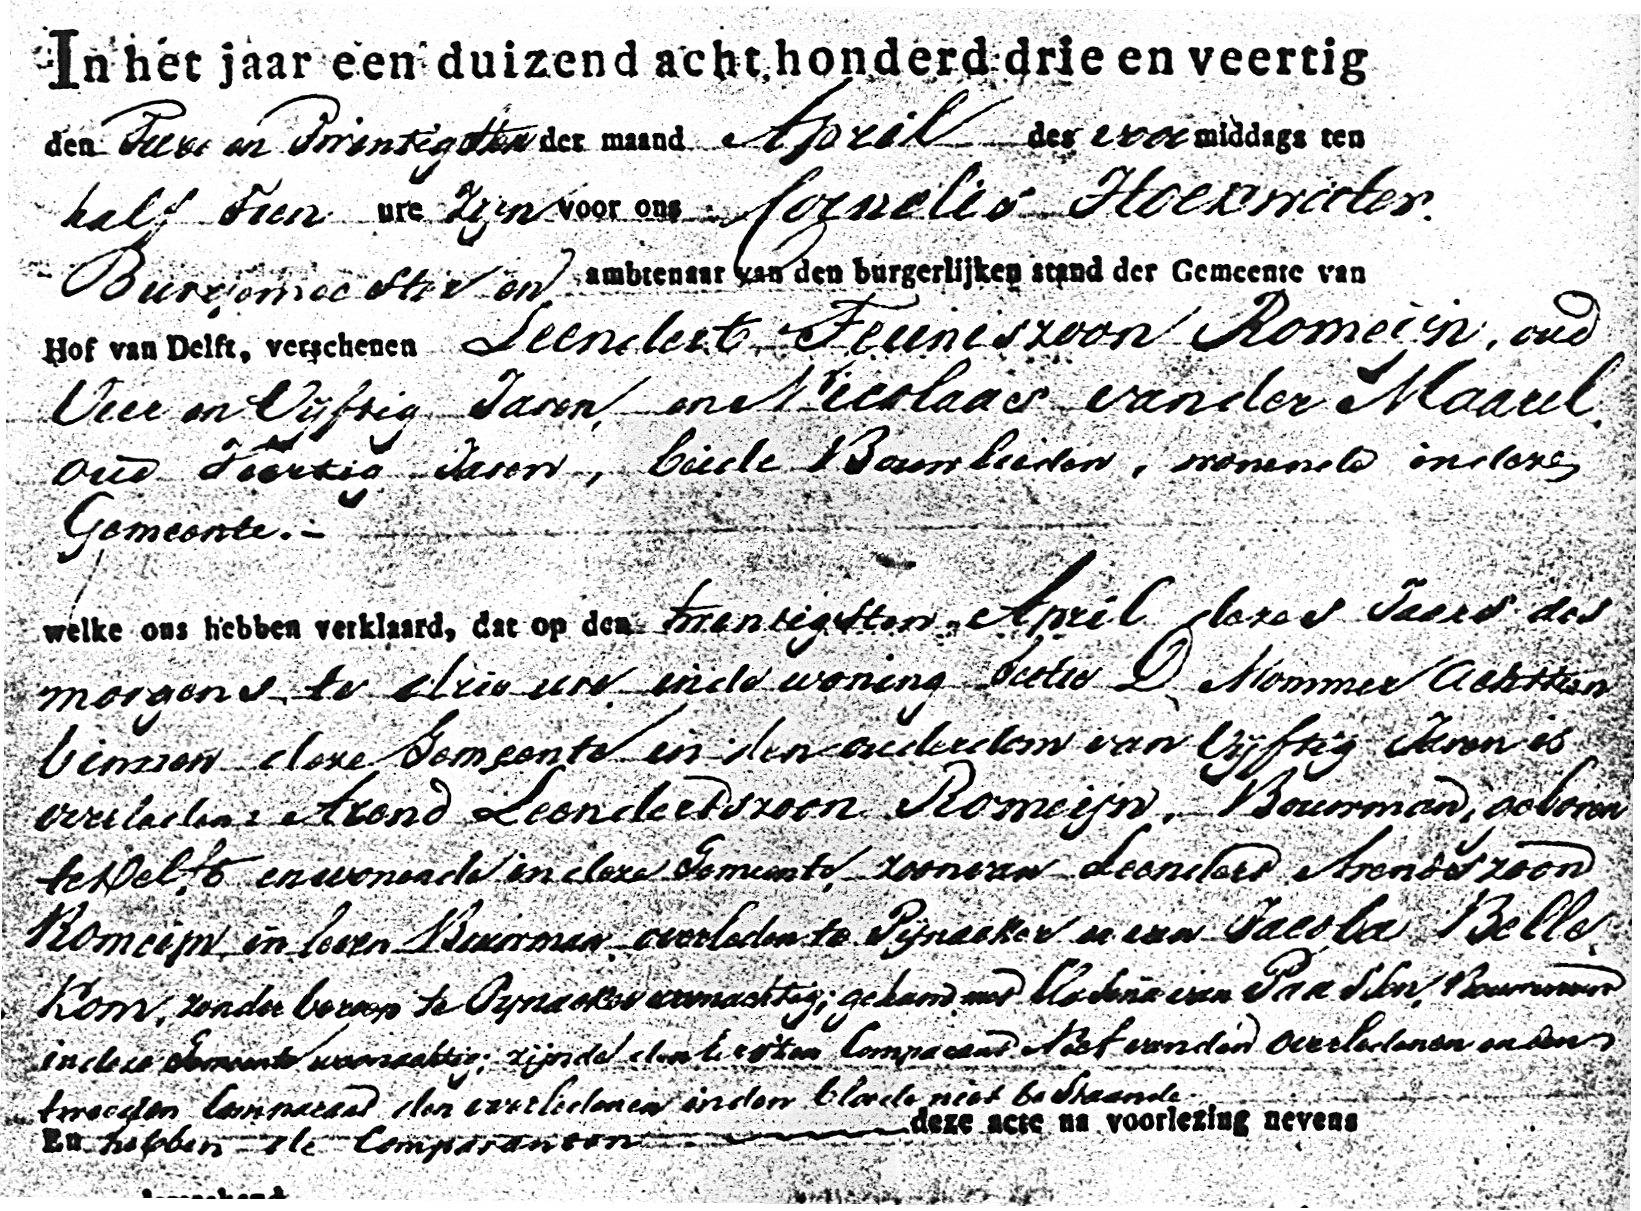 In het jaar een duizend acht honderd drie en veertig
den Twee en Twintigsten der maand April des voormiddags ten
half Tien ure Zyn voor ons Cornelis Hoekwater
Burgemeester en ambtenaar van den burgerlijken stand der Gemeente van
Hof van Delft, verschenen Leendert Teuniszoon Romeijn, oud
Vier en Vijftig Jaren, en Nicolaas van der Maarel
oud Jaren, beide Bouwlieden, wonende in deze
Gemeente. –
welke ons hebben verklaard, dat op den twentigsten April dezes Jaars des
morgens te drie ure in de woning Nommer Achttien
binnen deze Gemeente in den ouderdom van Vijftig Jaren is
overleden Arend Leendertszoon Romeijn, Bouwman, geboren
te Delft en wonende in deze Gemeente, zoon van Leendert Arendszoon
Romeijn in leven Bouwman overleden te Pijnacker en van Jacoba Belle
Kom, zonder beroep te Pynacker woonachtig; gehuwd met van Paassen, Bouwvrouw
in deze Gemeente woonachtig; zijnde den Eersten Comparant Neef van den Overledenen en den
tweeden Comparant den overledenen in den bloede niet bestaande
En hebben de Comparanten deze acte na voorlezing nevens